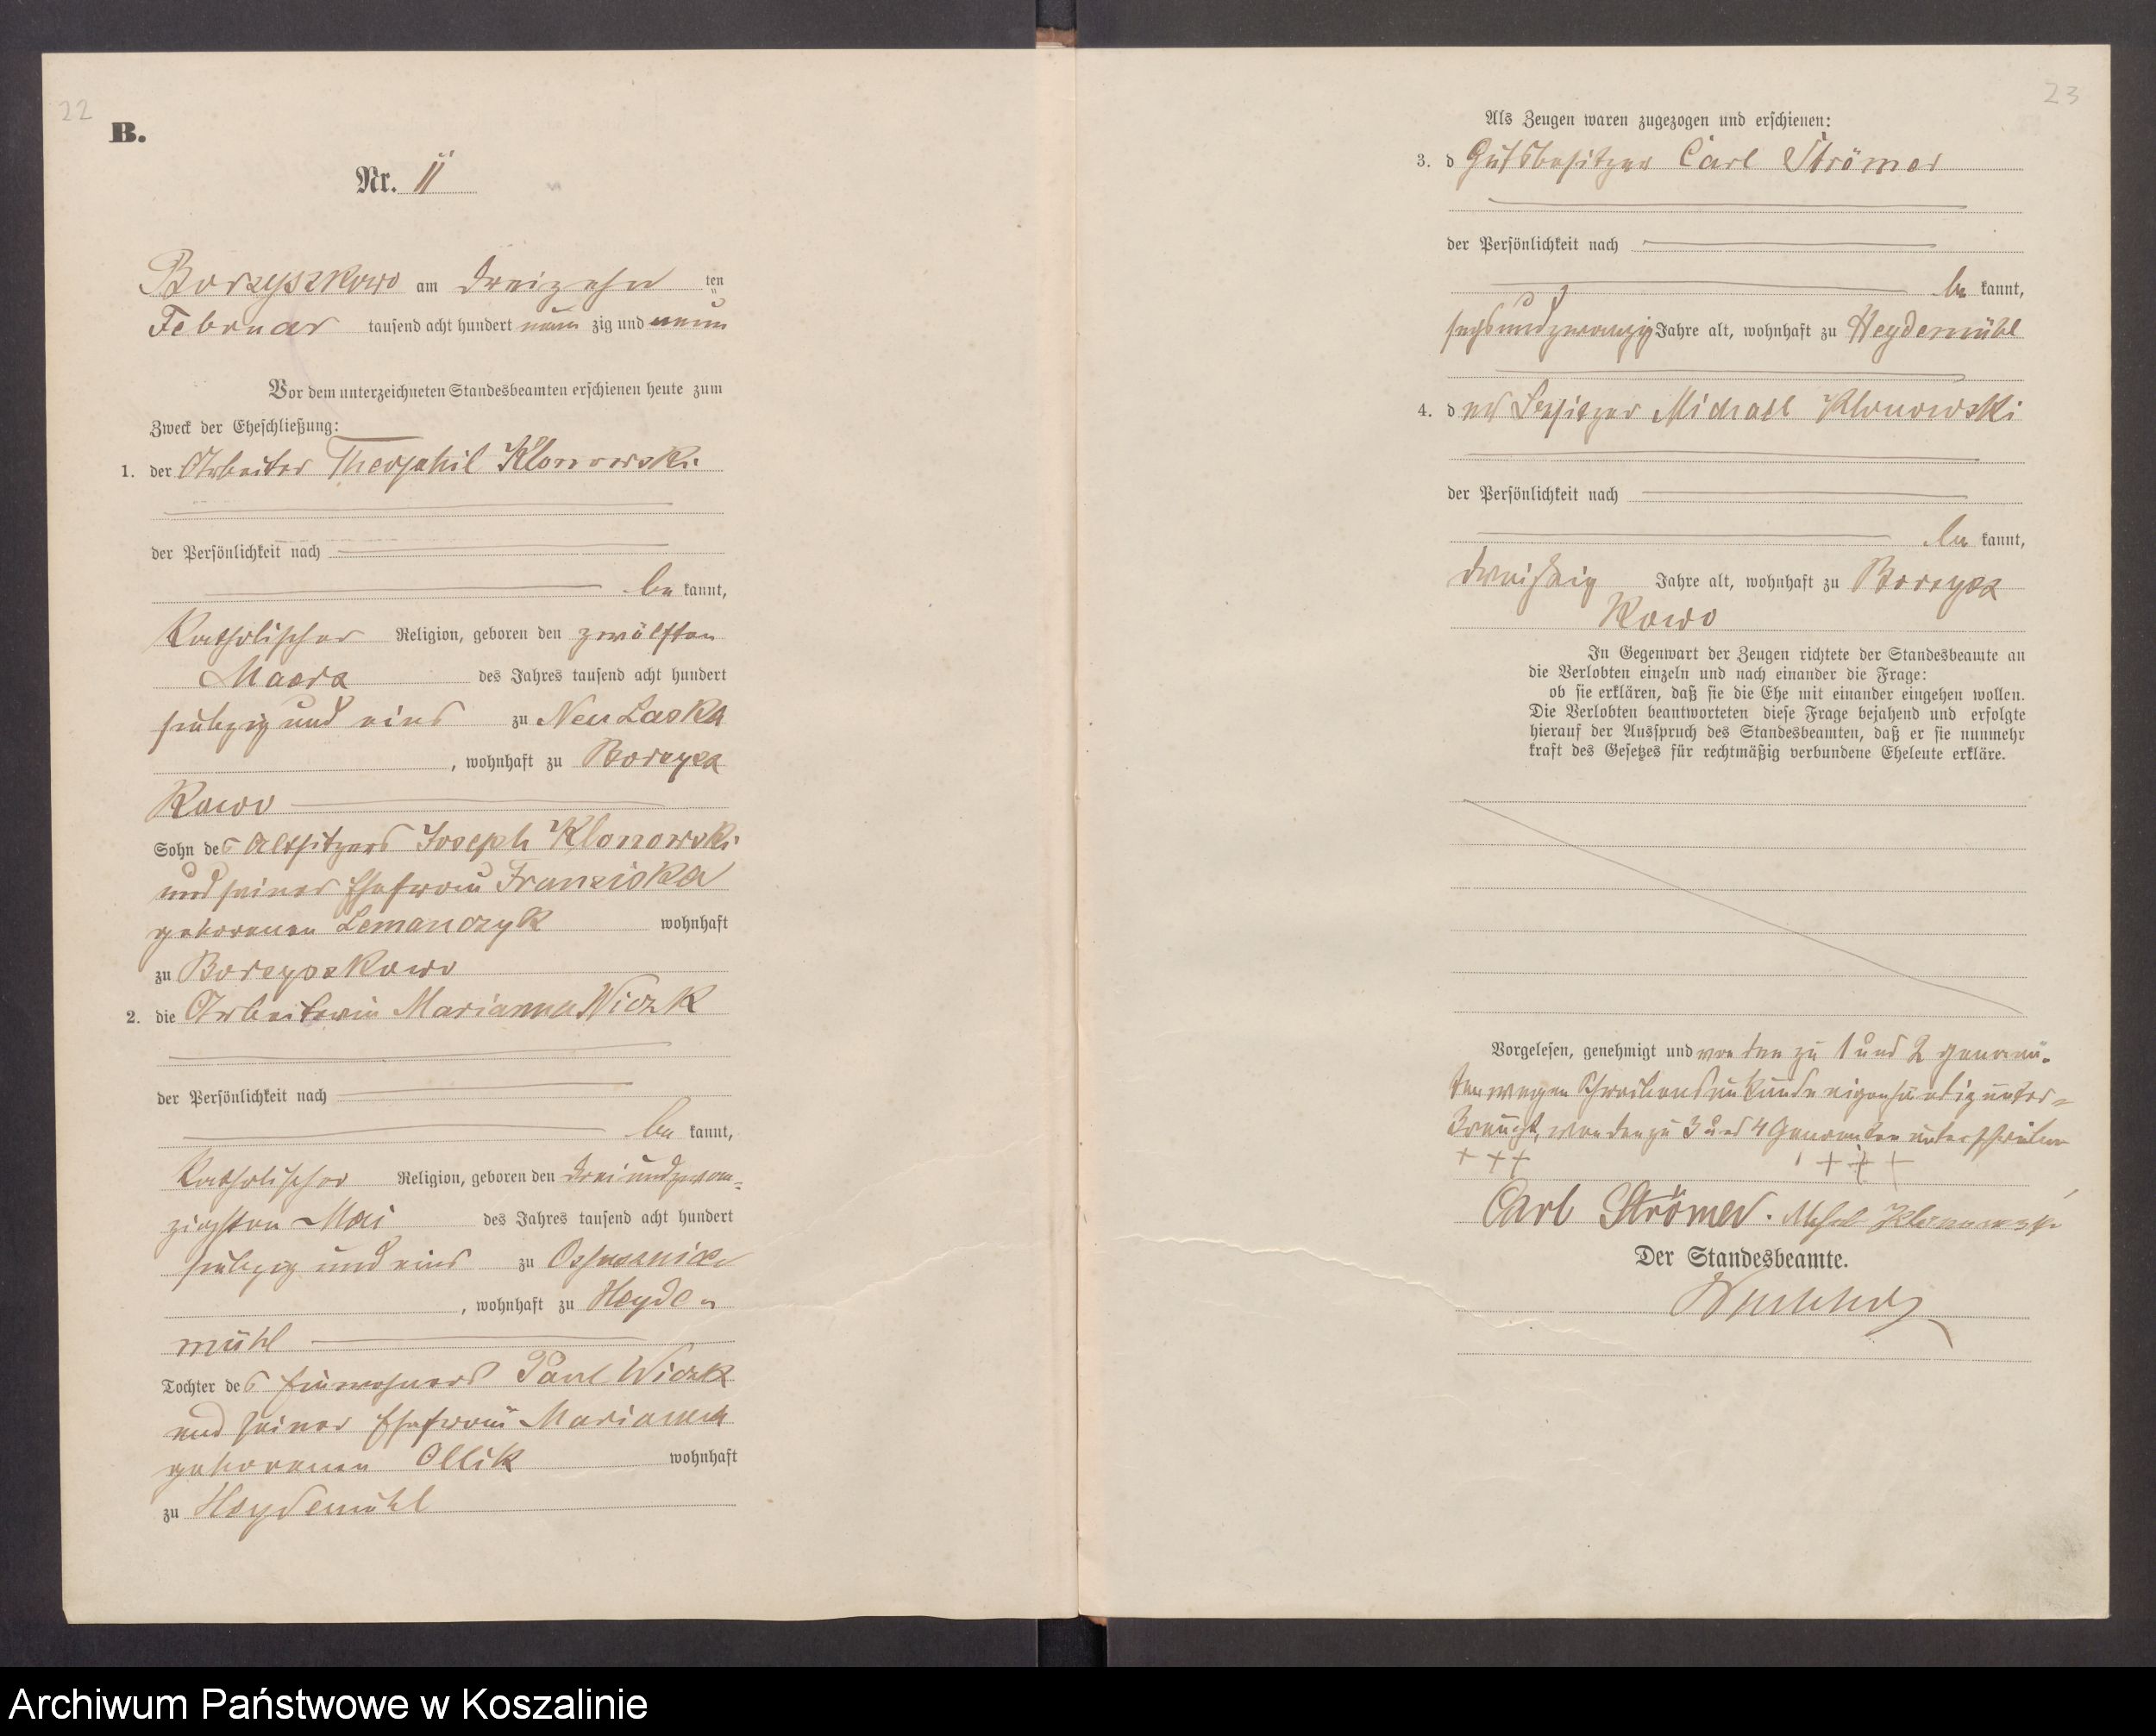 22
B.
Nr. 11
Borzyszkowo am dreizehn ten
Februar tausend acht hundert neun zig und neun
Vor dem unterzeichneten Standesbeamten erschienen heute zum
Zweck der Eheschließung:
1. der Arbeiter Theophil Klonowski
der Persönlichkeit nach
be kannt,
Katholischer Religion, geboren den zwölften
Maerz des Jahres tausend acht hundert
siebzig und eins zu Neu Laska
, wohnhaft zu Borzysz
kowo
Sohn des Altsitzers Joseph Klonowski
und seiner Ehefrau Franziska
geborenen Lemanczyk wohnhaft
zu Borzyszkowo
2. die Arbeiterin Marianna Wiczk
der Persönlichkeit nach
be kannt,
Katholischer Religion, geboren den dreiundzwan-
zigsten Mai des Jahres tausend acht hundert
siebzig und eins zu
, wohnhaft zu Heyde
mühl
Tochter des Einwohners Paul Wiczk
und seiner Ehefrau Marianna
geborenen Ollik wohnhaft
zu Heydemühl
23
Als Zeugen waren zugezogen und erschienen:
3. d Gutsbesitzer Carl Strömer
der Persönlichkeit nach
be kannt,
sechsundzwanzig Jahre alt, wohnhaft zu Heydemühl
4. der Besitzer Michael Klonowski
der Persönlichkeit nach
be kannt,
dreißig Jahre alt, wohnhaft zu Borzysz
kowo
In Gegenwart der Zeugen richtete der Standesbeamte an
die Verlobten einzeln und nach einander die Frage:
ob sie erklären, daß sie die Ehe mit einander eingehen wollen.
Die Verlobten beantworteten diese Frage bejahend und erfolgte
hierauf der Ausspruch des Standesbeamten, daß er sie nunmehr
kraft des Gesetzes für rechtmäßig verbundene Eheleute erkläre.
Vorgelesen, genehmigt und von den zu 1 und 2 genann-
ten wegen Schreibensunkunde eigenhändig unter-
kreuzt, von den zu 3 und 4 Genannten unterschrieben
+ + + + + +
Carl Strömer. Klonowski
Der Standesbeamte.
Archiwum Państwowe w Koszalinie